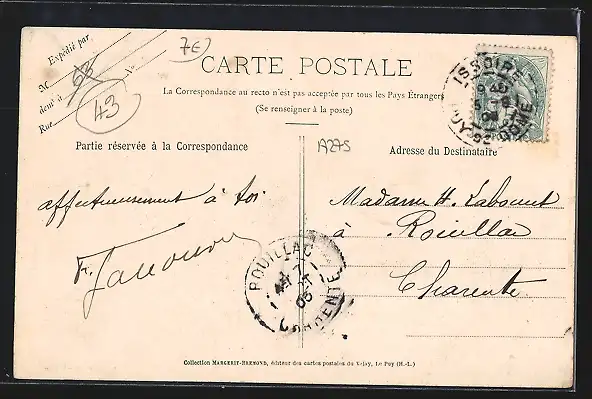 Expédié par
M
demt à
Rue
63
43
7E
CARTE POSTALE
La Correspondance au recto n'est pas acceptée par tous les Pays Étrangers
(Se renseigner à la poste)
Partie réservée à la Correspondance
A275
Adresse du Destinataire
ISSOIRE
PUY-DE-DOME
affectueusement à toi
Madame H.
à Rouillac
Charente
ROUILLAC
CHARENTE
Collection MARGERIT-BRÉMOND, éditeur des cartes postales du Velay, Le Puy (H.-L.)